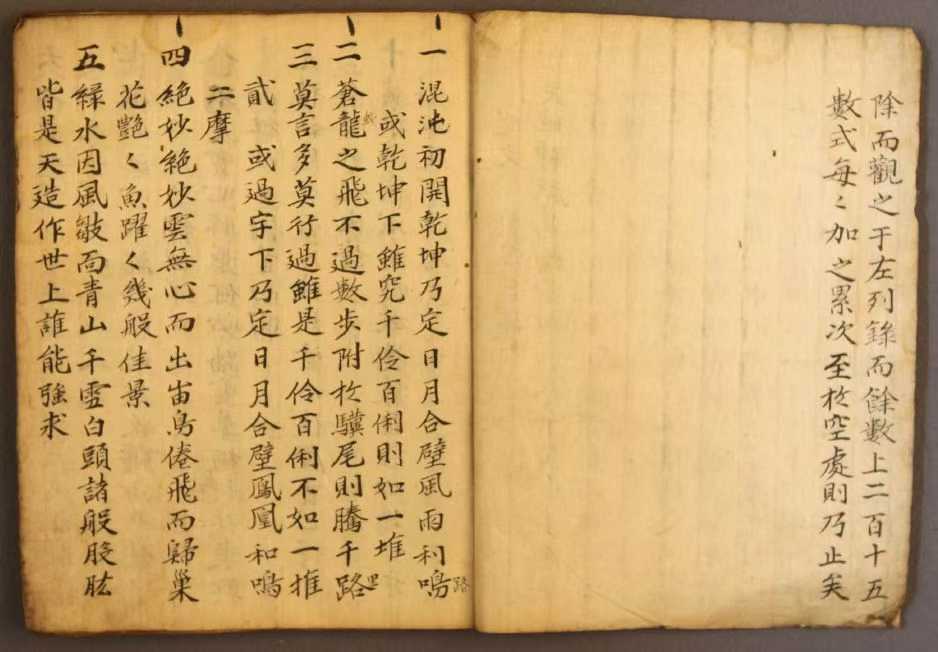 除而觀之于左列錄而餘數上二百十五
數式每々加之累次至於空處則乃止矣
一 混沌初開乾坤乃定日月合璧風雨利鳴
路
或乾坤下雖究千伶百俐則如一堆
二 蒼龍之飛不過數步附於驥尾則騰千路
里
三 莫言多莫行過雖是千伶百俐不如一推
貳 或過宇下乃定日月合璧鳳凰和鳴
二摩
四 絶妙絶妙雲無心而出宙鳥倦飛而歸巢
花艶々魚躍々幾般佳景
五 綠水因風皺面青山千雪白頭諸般肢肱
皆是天造作世上誰能強求